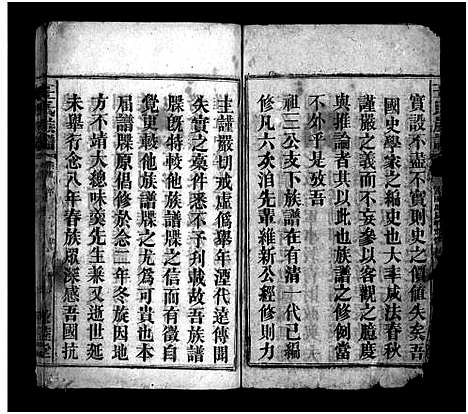 實設不盡不實則史之價値失矣吾
國史學家之編史也大率咸法春秋
謹嚴之義而不妄參以客觀之態度
與推論者此也族譜之修例當
不外乎是
祖三公支下族譜在有清一代已編
修凡六次洎先輩維新公經修則力
主謹嚴切戒虛僞舉年湮代遠傳聞
失實之藁件悉不予刋載故吾族譜
牒旣特較他族譜牒之信而有徵自
覺更較他族譜牒之尤爲可貴也本
屆譜牒原倡修於念二年冬族因地
方不靖大總味藁先生謙並又以逝而
未舉行念八年春族眾深感吾國抗